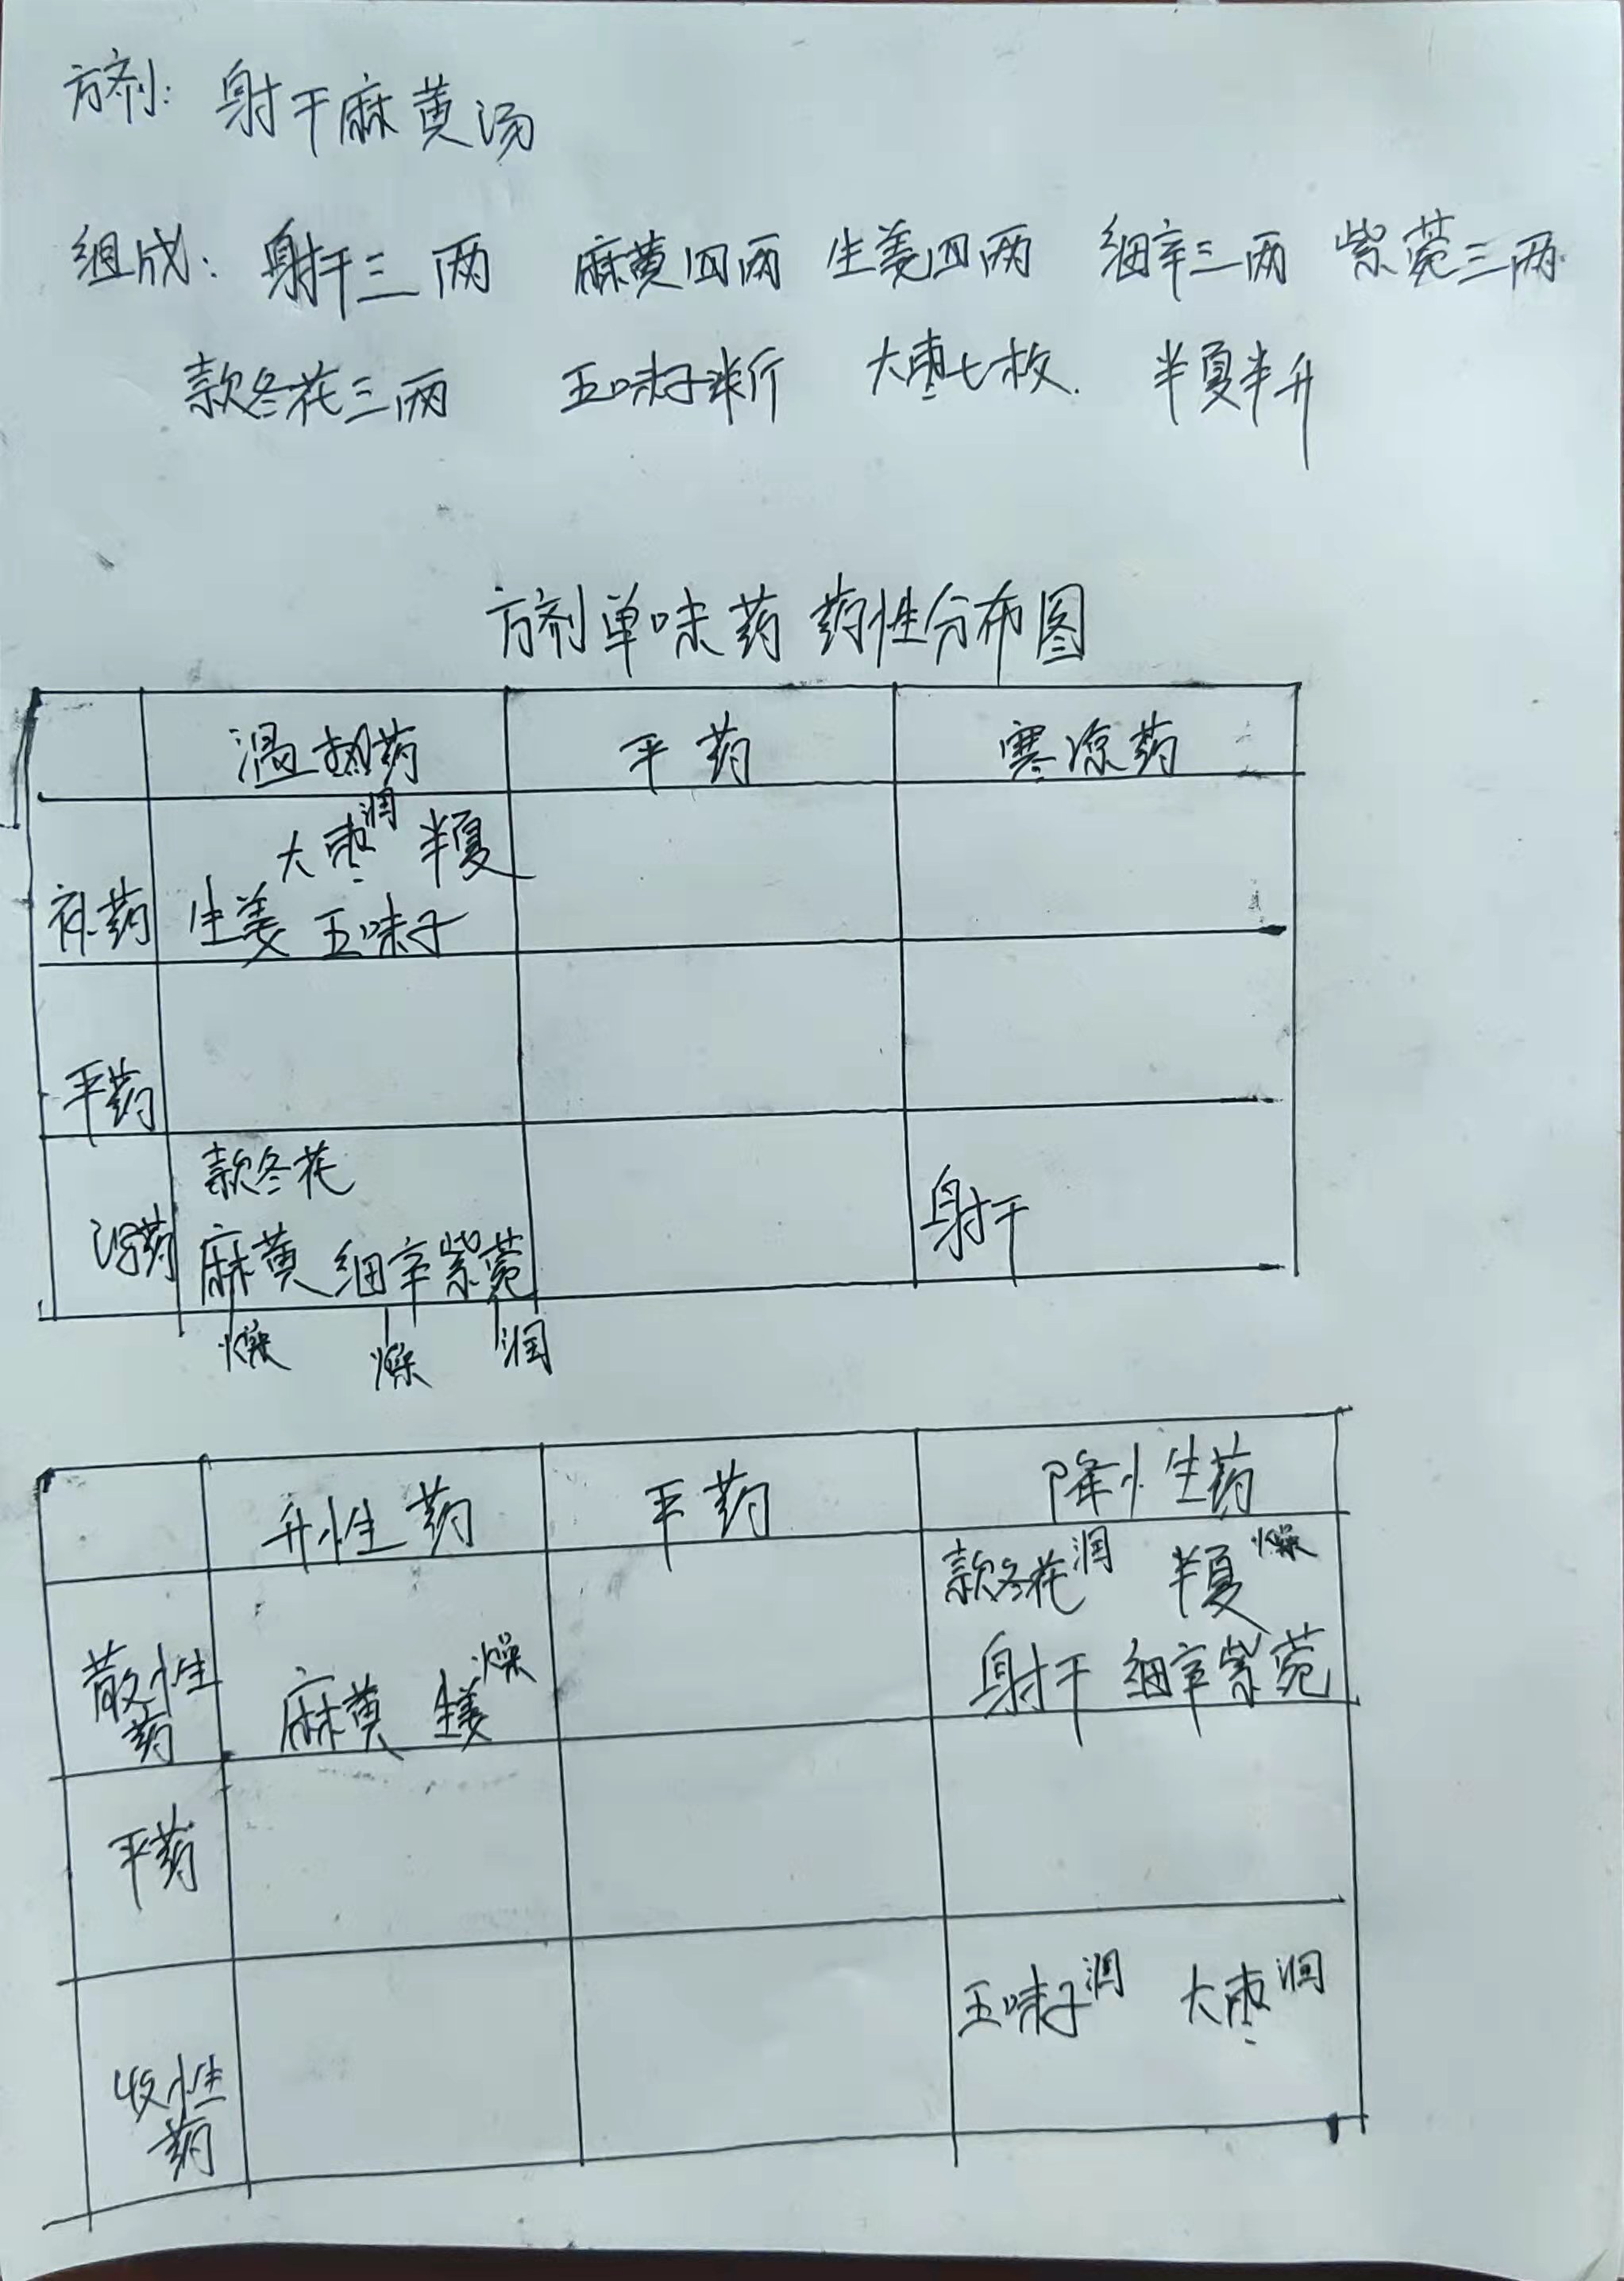 方剂: 射干麻黄汤
组成: 射干三两 麻黄四两 生姜四两 细辛三两 紫菀三两
款冬花三两 五味子半斤 大枣七枚. 半夏半升
方剂单味药 药性分布图
温热药 平药 寒凉药
大枣润 半夏
补药 生姜 五味子
平药
款冬花
泻药 麻黄 细辛 紫菀 射干
燥 燥 润
升性药 平药 降性药
款冬花润 半夏燥
散性药 麻黄 生姜燥 射干 细辛 紫菀
平药
五味子润 大枣润
收性药